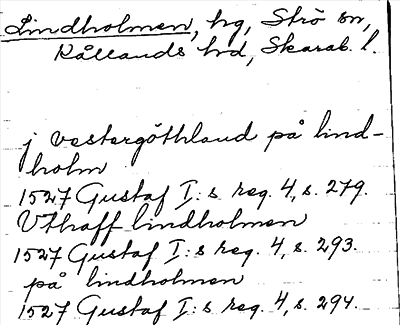 Lindholmen, hg, Strö sn,
Kållands hd, Skarab. l.
j Vestergöthland på lind-
holm
1527 Gustaf I:s reg. 4, s. 279.
Vthaff lindholmen
1527 Gustaf I:s reg. 4, s. 293.
på lindholmen
1527 Gustaf I:s reg. 4, s. 294.